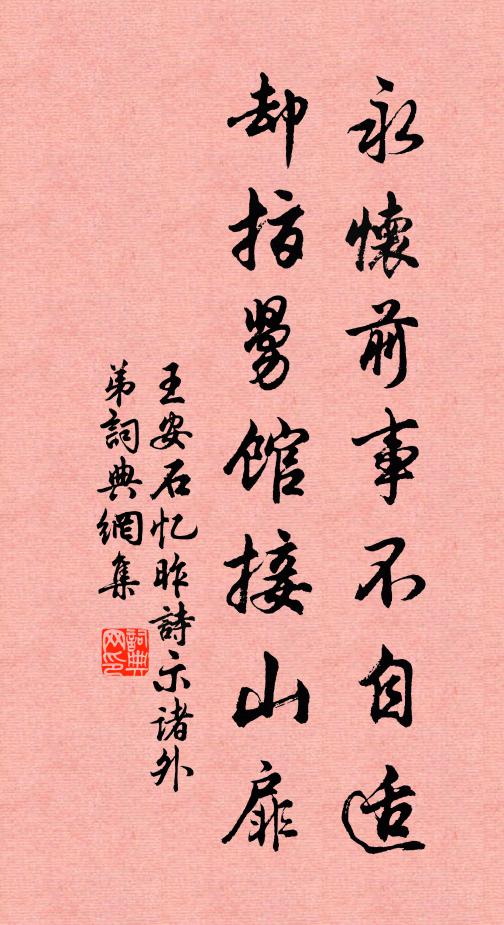 永懷前事不自適
却指舅館接山扉
王安石忆昨詩示諸外
弟詞典網集
詞典
网印